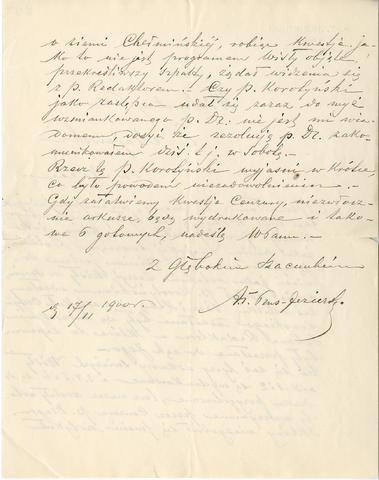 o ziemi Chełmińskiéj, robiąc kwestję, ja-
ko to nie jest programem Wisły objęte
przekreśliwszy szpalty, żądał widzenia się
z p. Redaktorem. – Czy p. Korotyński
jako zastępca udał się zaraz do wyż
wzmiankowanego p. Dr. nie jest mi wia-
domem, dosyć że rezolucję p. Dr. zako-
munikowałem dziś t. j. w Sobotę. –
Rzecz tę p. Korotyński wyjaśni w krótce,
co było powodem niezadowolnienia. –
Gdy załatwiemy kwestję Cenzury, niezwłocz-
nie arkusze, będą wydrukowane i tako-
we 6 gotowych, nadeślę WPanu. –
Z Głębokim szacunkiem
d 17/11 1900 r.